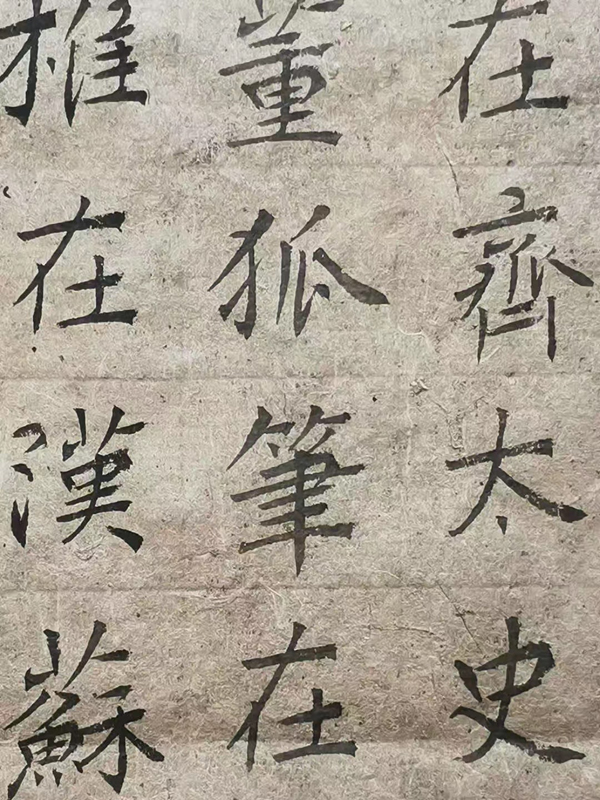 在齊太史
董狐筆在
椎在漢蘇